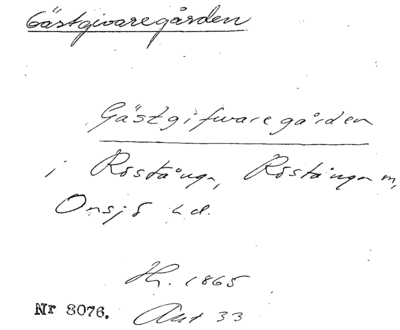 Gästgivaregården
Gästgifwaregården
i Röstånga, Röstånga sn,
Onsjö hd.
Hr. 1865
Akt 33
Nr 8076.